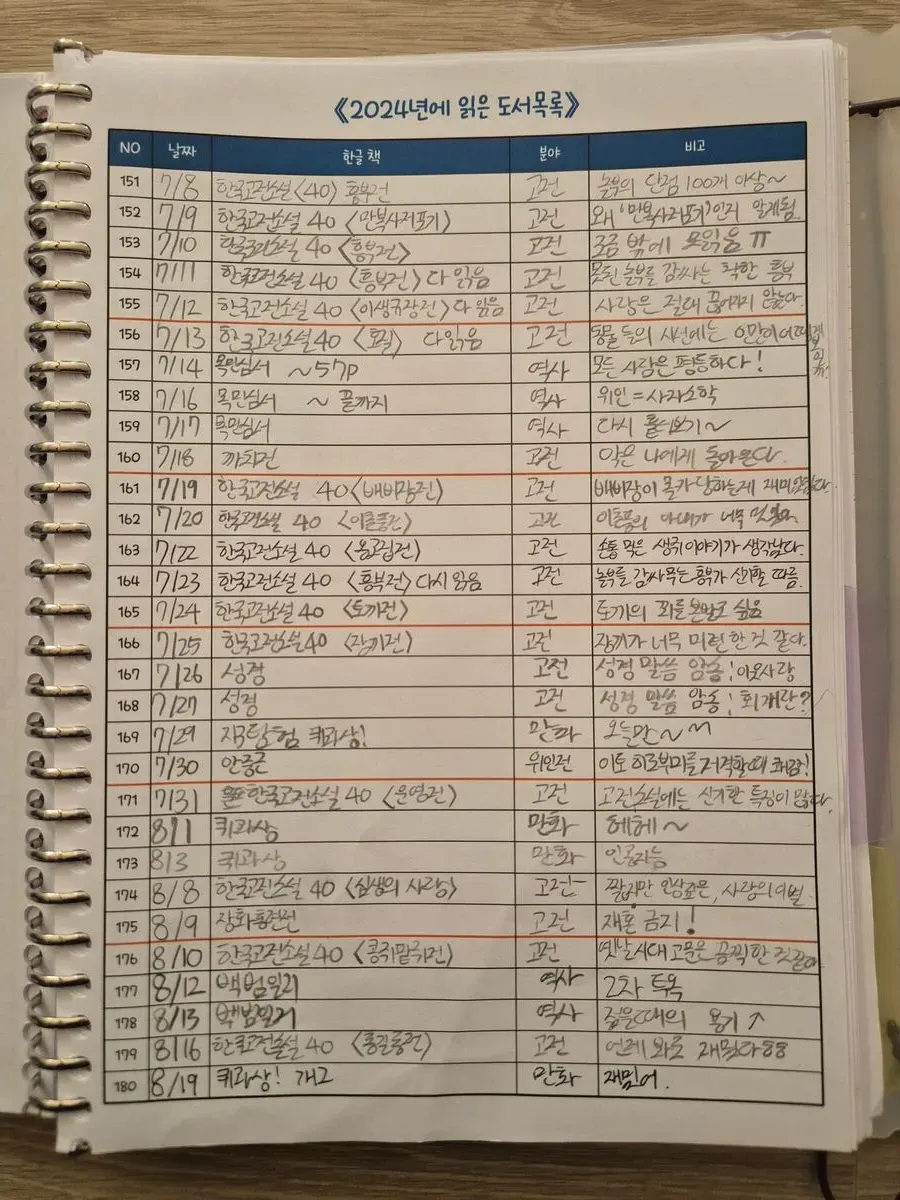 《2024년에 읽은 도서목록》
NO 날짜 한글 책 분야 비고
151 7/8 한국고전소설〈40〉흥부전 고전 놀부의 단점 100개 이상~
152 7/9 한국고전소설 40〈만복사저포기〉 고전 왜 '만복사저포기'인지 알게됨
153 7/10 한국고전소설 40〈흥부전〉 고전 조금 밖에 못읽음 ㅠ
154 7/11 한국고전소설 40〈흥부전〉다 읽음 고전 못된 놀부를 감싸는 착한 흥부
155 7/12 한국고전소설 40〈이생규장전〉다 읽음 고전 사랑은 절대 끊어지지 않는다.
156 7/13 한국고전소설 40〈호질〉 다읽음 고전 동물들의 시선에는 인간이
157 7/14 목민심서 ~57p 역사 모든 사람은 평등하다!
158 7/16 목민심서 ~ 끝까지 역사 위인=사자소학
159 7/17 목민심서 역사 다시 훑어보기~
160 7/18 까치전 고전 악은 나에게 돌아온다.
161 7/19 한국고전소설 40〈배비장전〉 고전 배비장이 몰카당하는게 재미있다.
162 7/20 한국고전소설 40〈이춘풍전〉 고전 이춘풍의 아내가 너무
163 7/22 한국고전소설 40〈옹고집전〉 고전 손톱 먹은 생쥐이야기가 생각났다.
164 7/23 한국고전소설 40〈흥부전〉다시 읽음 고전 놀부를 감싸주는 흥부가 신기할 따름.
165 7/24 한국고전소설 40〈토끼전〉 고전 토끼의 회를 싶음
166 7/25 한국고전소설 40〈장끼전〉 고전 장끼가 너무 미련한 것 같다.
167 7/26 성경 고전 성경 말씀 암송! 이웃사랑
168 7/27 성경 고전 성경 말씀 암송! 회개란?
169 7/29 지구탐험 퀴과상! 만화 오늘만~
170 7/30 안중근 위인전 이토 히로부미를 저격할때 쾌감!
171 7/31 한국고전소설 40〈운영전〉 고전 고전소설에는 신기한 특징이 많다.
172 8/1 퀴과상 만화 헤헤~
173 8/3 퀴과상 만화 인공지능
174 8/8 한국고전소설 40〈심생의 사랑〉 고전 짧지만 인상깊은, 사랑의 이별
175 8/9 장화홍련전 고전 재혼 금지!
176 8/10 한국고전소설 40〈콩쥐팥쥐전〉 고전 옛날시대 고문은 끔찍한 것같아
177 8/12 백범일지 역사 2차 투옥
178 8/13 백범일지 역사 젊은때의 용기 ↑
179 8/16 한국고전소설 40〈홍길동전〉 고전 언제 와도 재밌다
180 8/19 퀴과상! 개그 만화 재밌어.